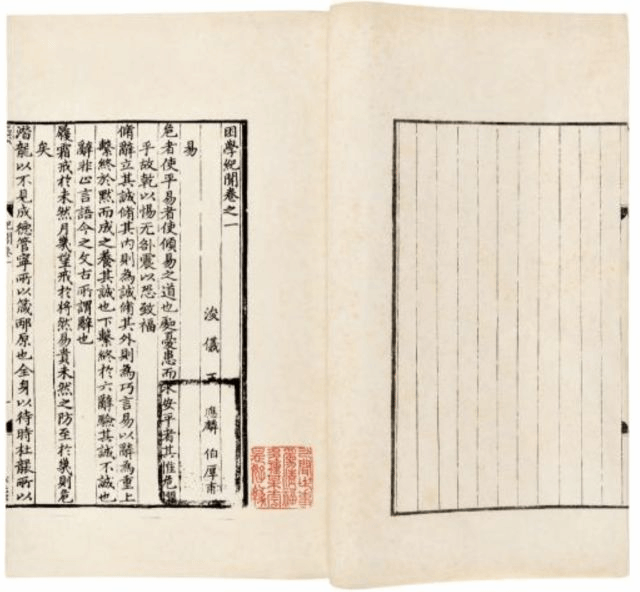 困學紀聞卷之一
浚儀 王 應麟 伯厚甫
易
危者使平易者使傾易之道也處憂患而求安平者其惟危懼
乎故乾以惕无咎震以恐致福
脩辭立其誠脩其內則為誠脩其外則為巧言易以辭為重上
繫終於默而成之養其誠也下繫終於六辭驗其誠不誠也
辭非止言語今之文古所謂辭也
履霜戒於未然月幾望戒於將然易貴未然之防至於幾則危
矣
潛龍以不見成德管寧所以箴邴原也全身以待時杜襲所以